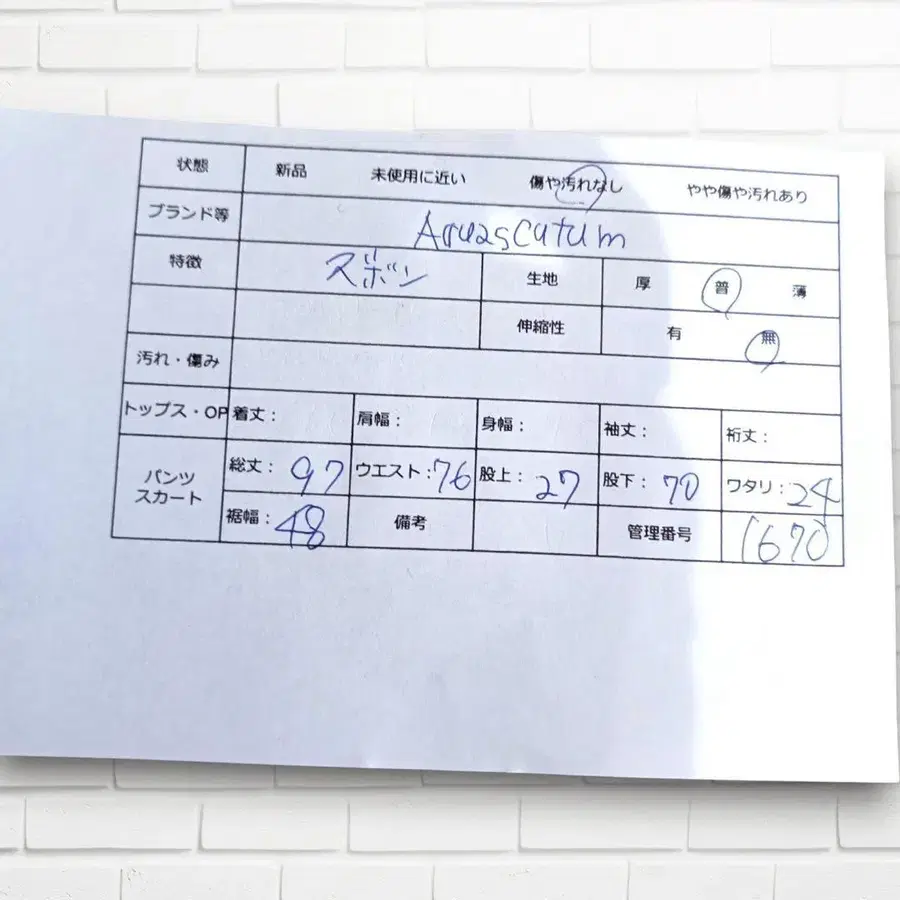 状態 新品 未使用に近い 傷や汚れなし やや傷や汚れあり
ブランド等 Aquascutum
特徴 ズボン 生地 厚 普 薄
伸縮性 有 無
汚れ・傷み
トップス・OP 着丈: 肩幅: 身幅: 袖丈: 裄丈:
パンツ スカート 総丈: 97 ウエスト: 76 股上: 27 股下: 70 ワタリ: 24
裾幅: 48 備考 管理番号 1670